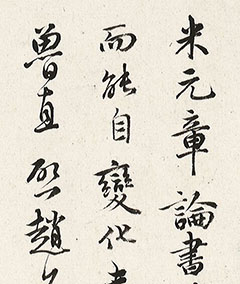 米元章論書
而能自變化
魯直趙